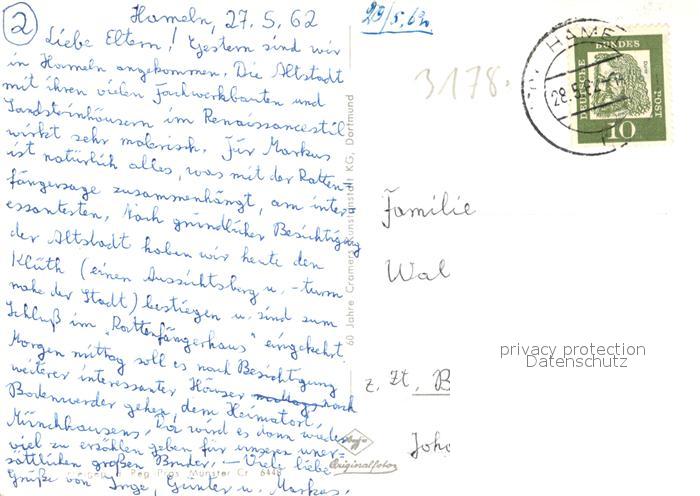 ②
Hameln, 27. 5. 62
Liebe Eltern! Gestern sind wir
in Hameln angekommen. Die Altstadt
mit ihren vielen Fachwerkbauten und
Sandsteinhäusern im Renaissancestil
wirkt sehr malerisch. Für Markus
ist natürlich alles, was mit der Ratten-
fängersage zusammenhängt, am inter-
essantesten. Nach gründlicher Besichtigung
der Altstadt haben wir heute den
Klüth (einen Aussichtsberg u. -turm
nahe der Stadt) bestiegen u. sind zum
Schluß im „Rattenfängerhaus" eingekehrt
Morgen mittag soll es nach Besichtigung
weiterer interessanter Häuser nach
Bodenwerder gehen, dem Heimatort
Münchhausens. Da wird es dann wieder
viel zu erzählen geben für unseren uner-
sättlichen großen Bruder. — Viele liebe
Grüße von Inge, Günter u. Markus.
60 Jahre Cramers Kunstanstalt KG, Dortmund
Agfa
Originalfoto
29/5.62
3178.
HAME
28.5.62
DEUTSCHE
BUNDES
POST
10
Familie
Wal
z. Zt. B
Joh
privacy protection
Datenschutz